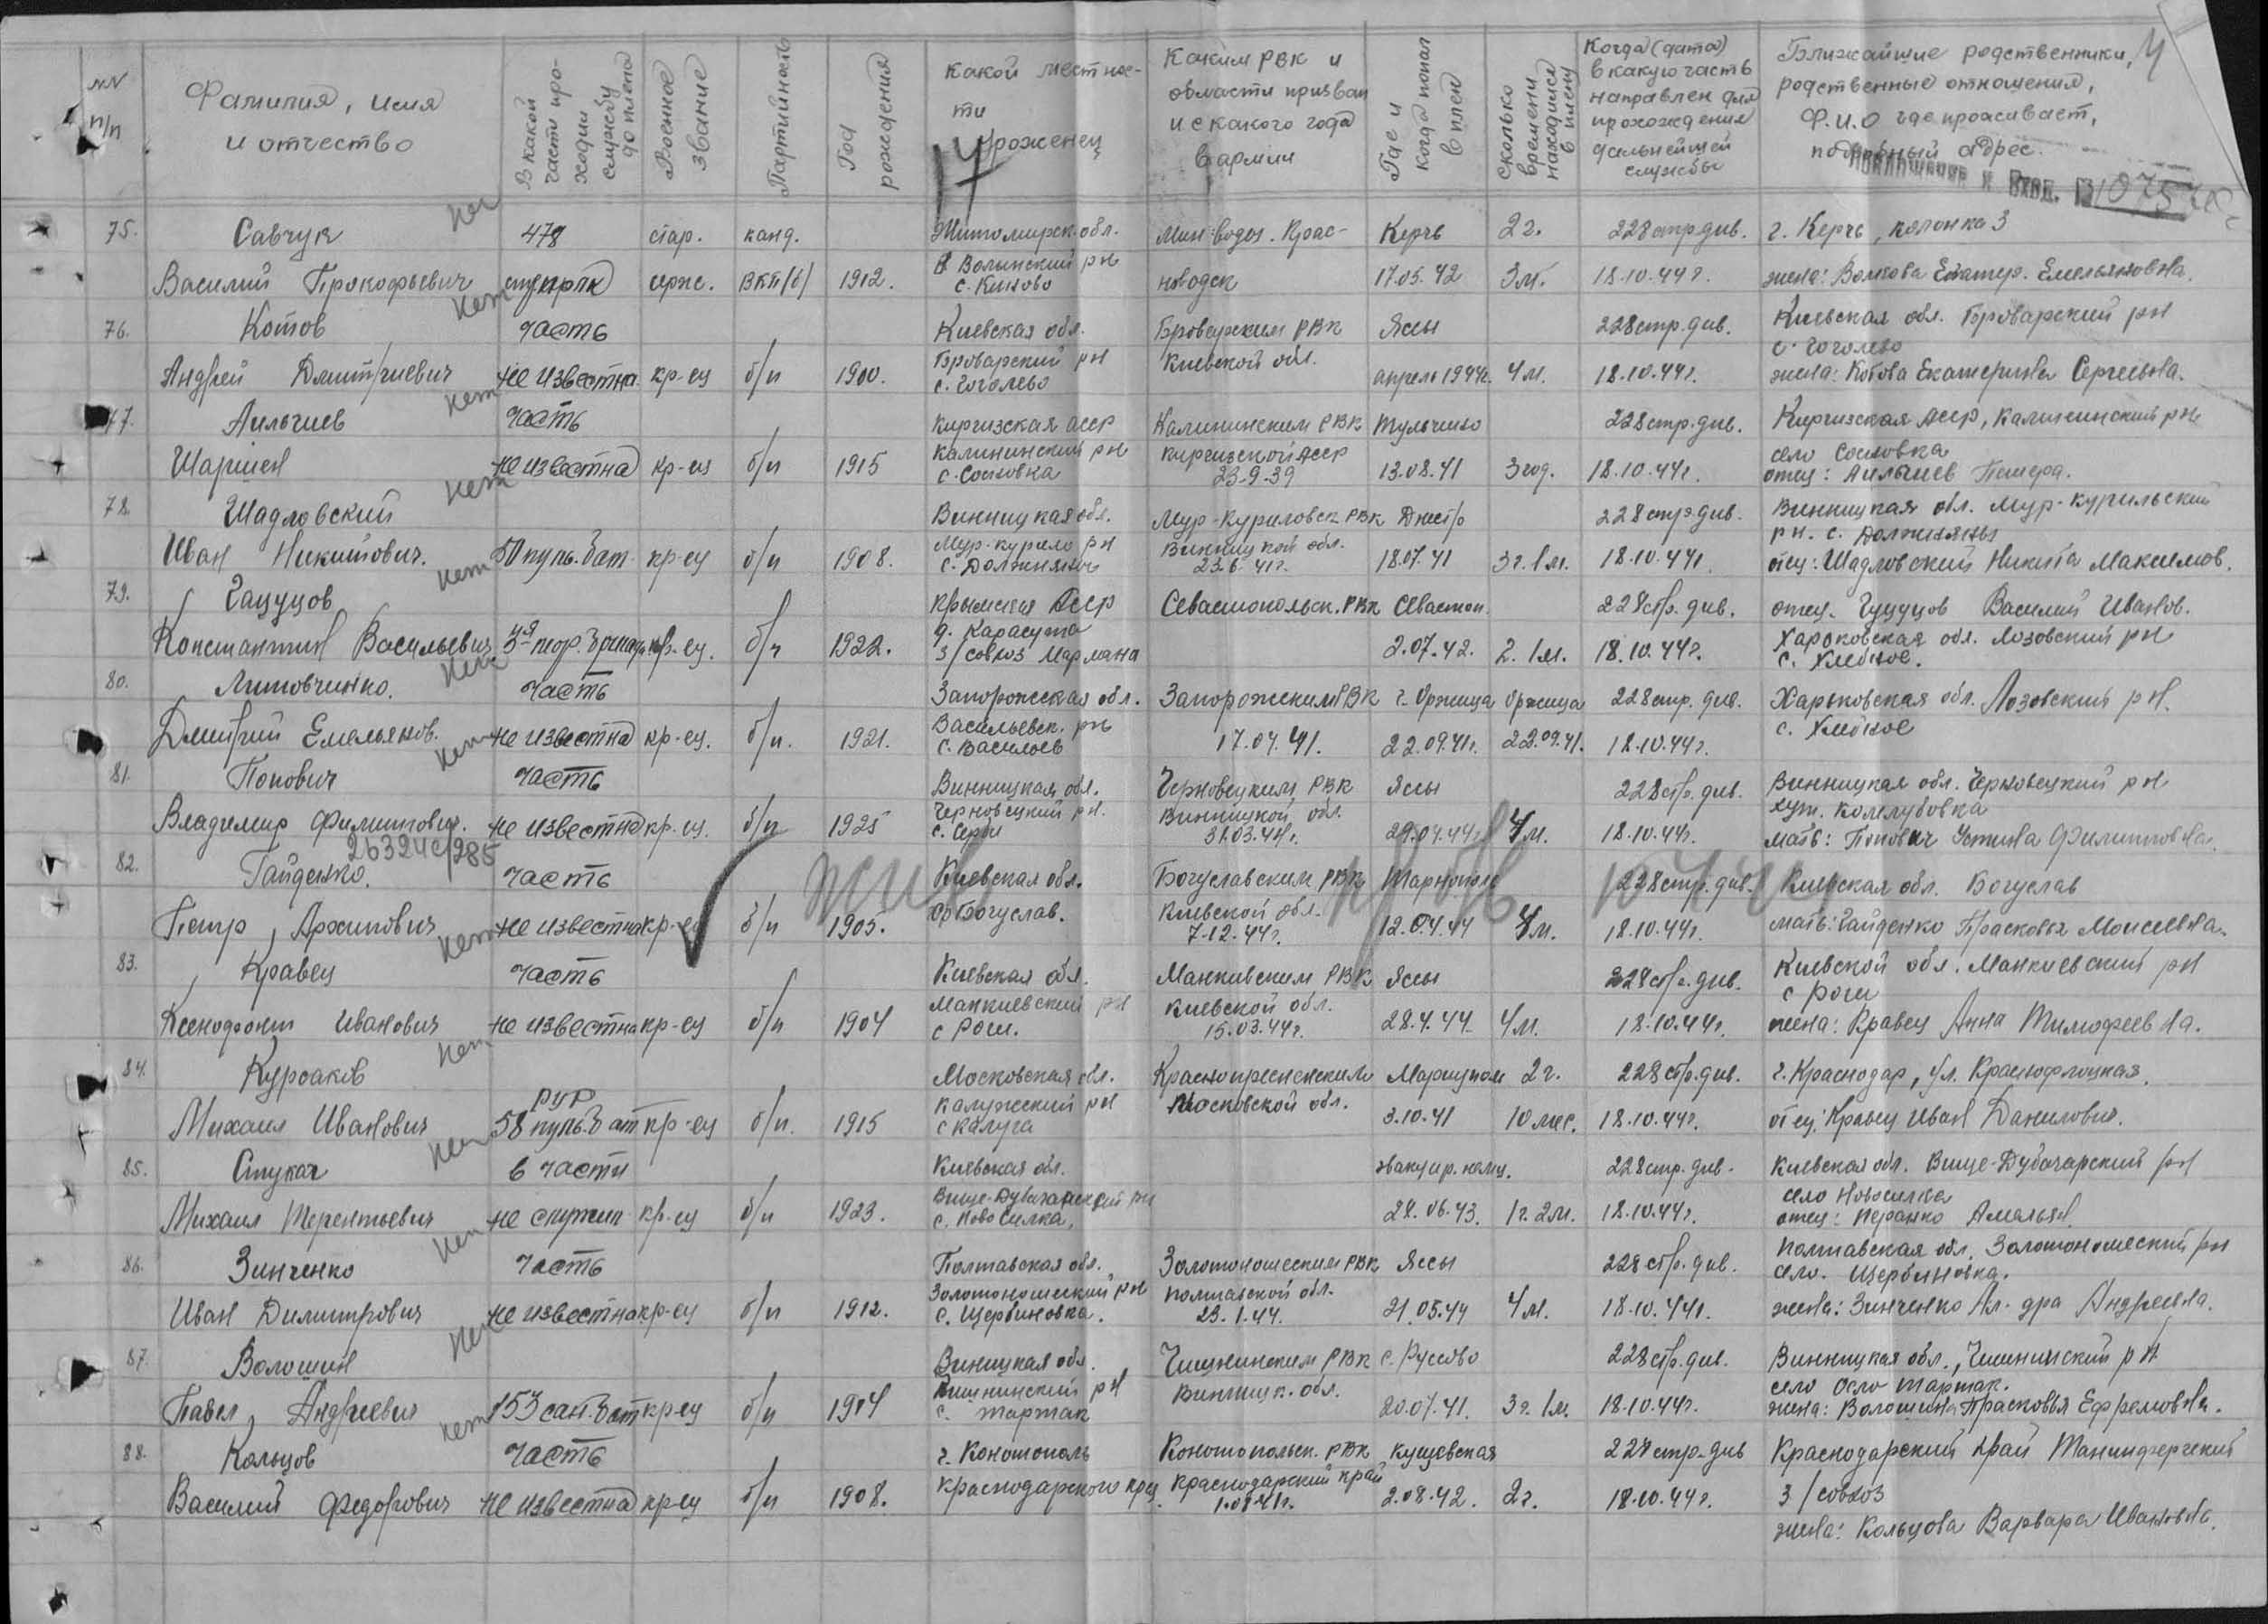 NN п/п
Фамилия, имя и отчество
В какой части проходил службу до плена
Военное звание
Партийность
Год рождения
Какой местности уроженец
Каким РВК и области призван и с какого года в армии
Где и когда попал в плен
Сколько времени находился в плену
Когда (дата) в какую часть направлен для прохождения дальнейшей службы
Ближайшие родственники, родственные отношения, Ф.И.О где проживает, подробный адрес.
4
17
Вход.
75. Савчук 478 стар. канд. Житомирск. обл. Мин-водск. Крас- Керчь 2 г. 228 стр. див. г. Керчь, колонка 3
Василий Прокофьевич нет серж. ВКП(б) 1912. Волынский рн новодск 17.05.42 3 м. 18.10.44 г. жена: Волкова Екатер. Емельяновна.
76. Котов часть Киевская обл. Броварским РВК Яссы 228 стр. див. Киевская обл. Броварский рн
с. Гоголево
Андрей Дмитриевич нет не известна кр-ец б/п 1900. Броварский рн с. Гоголево Киевской обл. апрель 1944 г. 4 м. 18.10.44 г. жена: Котова Екатерина Сергеевна.
77. Аильчиев часть Киргизская асср Калининским РВК Тульчино 228 стр. див. Киргизская асср, Калининский рн
село Сосновка
Шаршен нет не известна кр-ец б/п 1915 Калининский рн с. Сосновка киргизской асср 23-9-39 13.08.41 3 год. 18.10.44 г. отец: Аильчиев
78. Шадловский Винницкая обл. Мур-Куриловск РВК Днестр 228 стр. див. Винницкая обл. Мур-курильский
рн. с. Должняны
Иван Никитович. нет 50 пуль. бат. кр-ец б/п 1908. Мур-курило рн с. Должняны Винницкой обл. 23.6.41 г. 18.07.41 3 г. 1 м. 18.10.44 г. отец: Шадловский Никита Максимов.
79. Гацуцов Крымская Асср Севастопольск. РВК Севастоп. 228 стр. див. отец. Гуцуцов Василий Иванов.
Константин Васильевич нет бригада кр-ец. б/п 1922. з/совхоз 2.07.42. 2. 1 м. 18.10.44 г. Харьковская обл. Лозовский рн
с. Хлебное.
80. Литовченко. часть Запорожская обл. Запорожским РВК г. Оржица Оржица 228 стр. див. Харьковская обл. Лозовский рн.
с. Хлебное
Дмитрий Емельянов. нет не известна кр-ец. б/п. 1921. Васильевск. рн с. Васильев 17.04.41. 22.09.41 г. 22.09.41. 18.10.44 г.
81. Попович часть Винницкая обл. Черновецким РВК Яссы 228 стр. див. Винницкая обл. Черновецкий рн
Владимир Филиппович. нет не известна кр-ец. б/п 1925 Черновецкий рн. Винницкой обл. 31.03.44 г. 29.04.44 г. 4 м. 18.10.44 г. мать: Попович Устина Филипповна.
26324с/285
82. Гайденко. часть жив Киевская обл. Богуславским РВК Тарнополь 228 стр. див. Киевская обл. Богуслав
Петр Архипович не известна кр-ец б/п 1905. Богуслав. Киевской обл. 7.12.44 г. 12.04.44 4 м. 18.10.44 г. мать: Гайденко Прасковья Моисеевна.
83. Кравец часть Киевская обл. Манкивским РВК Яссы 228 стр. див. Киевской обл. Манкиевский рн
Ксенофонт Иванович нет не известна кр-ец б/п 1904 Манкиевский рн Киевской обл. 15.03.44 г. 28.4.44. 4 м. 18.10.44 г. жена: Кравец Анна Тимофеевна.
84. Московская обл. Краснопресненским Мариуполь 2 г. 228 стр. див. г. Краснодар, ул. Краснофлоцкая.
Михаил Иванович нет рур 58 пуль. бат кр-ец б/п. 1915 Калужский рн с Калуга Московской обл. 3.10.41 10 мес. 18.10.44 г. отец: Кравец Иван Данилович.
85. Стукач в части Киевская обл. эвакуир. немц. 228 стр. див. Киевская обл. Вище-Дубачарский рн
село Новоселка
Михаил Терентьевич нет не служил кр-ец б/п 1923. с. Новоселка, 28.06.43. 1 г. 2 м. 18.10.44 г. отец:
86. Зинченко часть Полтавская обл. Золотоношеским РВК Яссы 228 стр. див. Полтавская обл. Золотоношеский рн
село. Щербиновка.
Иван Димитрович нет не известна кр-ец б/п 1912. Золотоношеский рн с. Щербиновка. Полтавской обл. 23.1.44. 21.05.44 4 м. 18.10.44 г. жена: Зинченко Ал-дра Андреевна.
87. Волошин Винницкая обл. с. Русово 228 стр. див. Винницкая обл.,
Павел Андреевич нет 153 сан. бат кр-ец б/п 1904 с. Тартак Винницк. обл. 20.07.41. 3 г. 1 м. 18.10.44 г. жена: Волошина Прасковья Ефремовна.
88. Кольцов часть г. Конотополь Конотопольск. РВК Кущевская 228 стр. див Краснодарский край
з/совхоз
Василий Федорович нет не известна кр-ец б/п 1908. Краснодарского края Краснодарский край 2.08.42. 2 г. 18.10.44 г.
жена: Кольцова Варвара Ивановна.